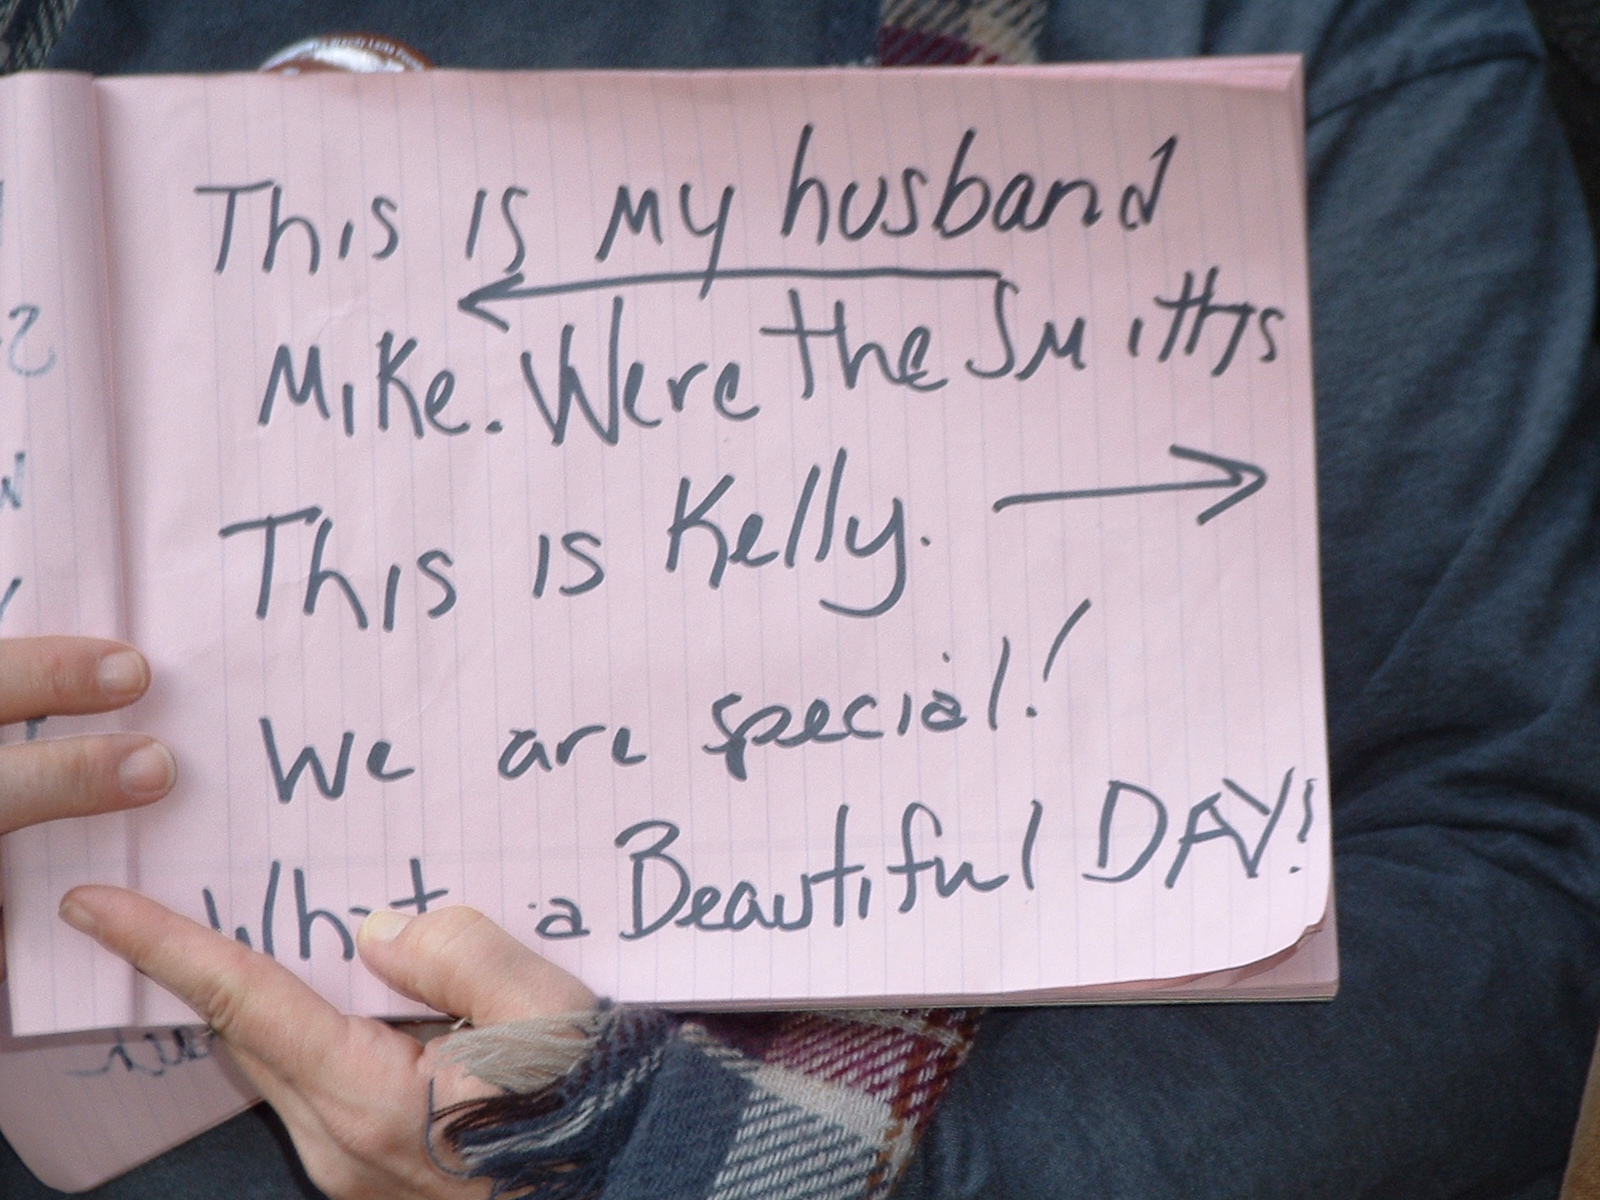 This is my husband
Mike. Were the Smiths
This is Kelly.
We are special!
What a Beautiful DAY!